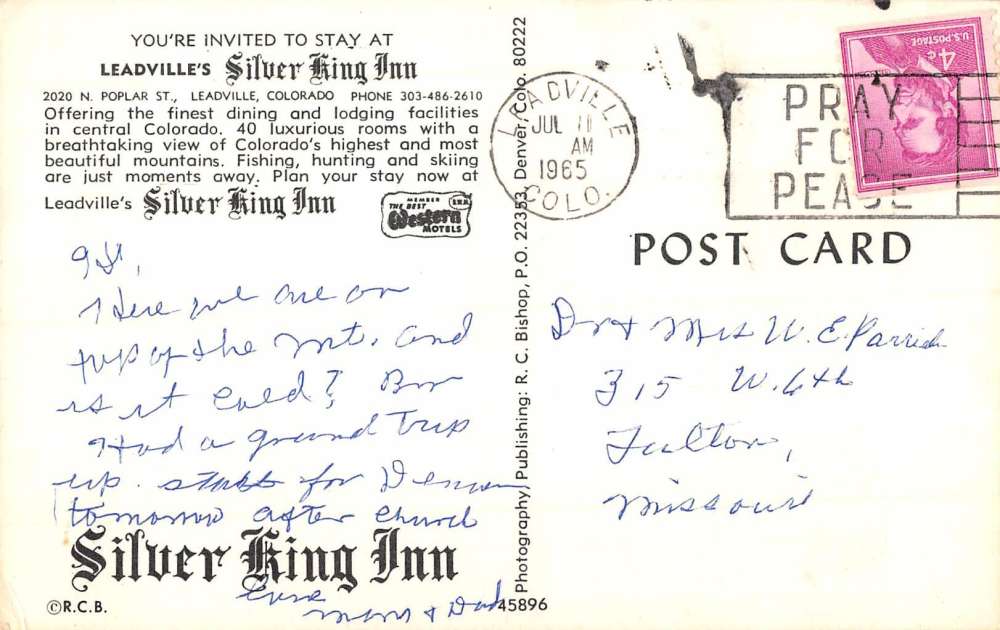 YOU'RE INVITED TO STAY AT
LEADVILLE'S Silver King Inn
2020 N. POPLAR ST., LEADVILLE, COLORADO PHONE 303-486-2610
Offering the finest dining and lodging facilities
in central Colorado. 40 luxurious rooms with a
breathtaking view of Colorado's highest and most
beautiful mountains. Fishing, hunting and skiing
are just moments away. Plan your stay now at
Leadville's Silver King Inn
MEMBER
THE BEST
Western
MOTELS
Here we are on
top of the Mt. and
is it cold?
Had a grand trip
up. starts for Denver
tomorrow after church
Silver King Inn
Love
Mom & Dad
©R.C.B.
Photography, Publishing: R. C. Bishop, P.O. 22353, Denver, Colo. 80222
45896
LEADVILLE
JUL
AM
1965
COLO.
PRAY
FOR
PEACE
U.S. POSTAGE
4c
POST CARD
Dr & Mrs W. E. Parrish
315 W. 6th
Fulton,
Missouri